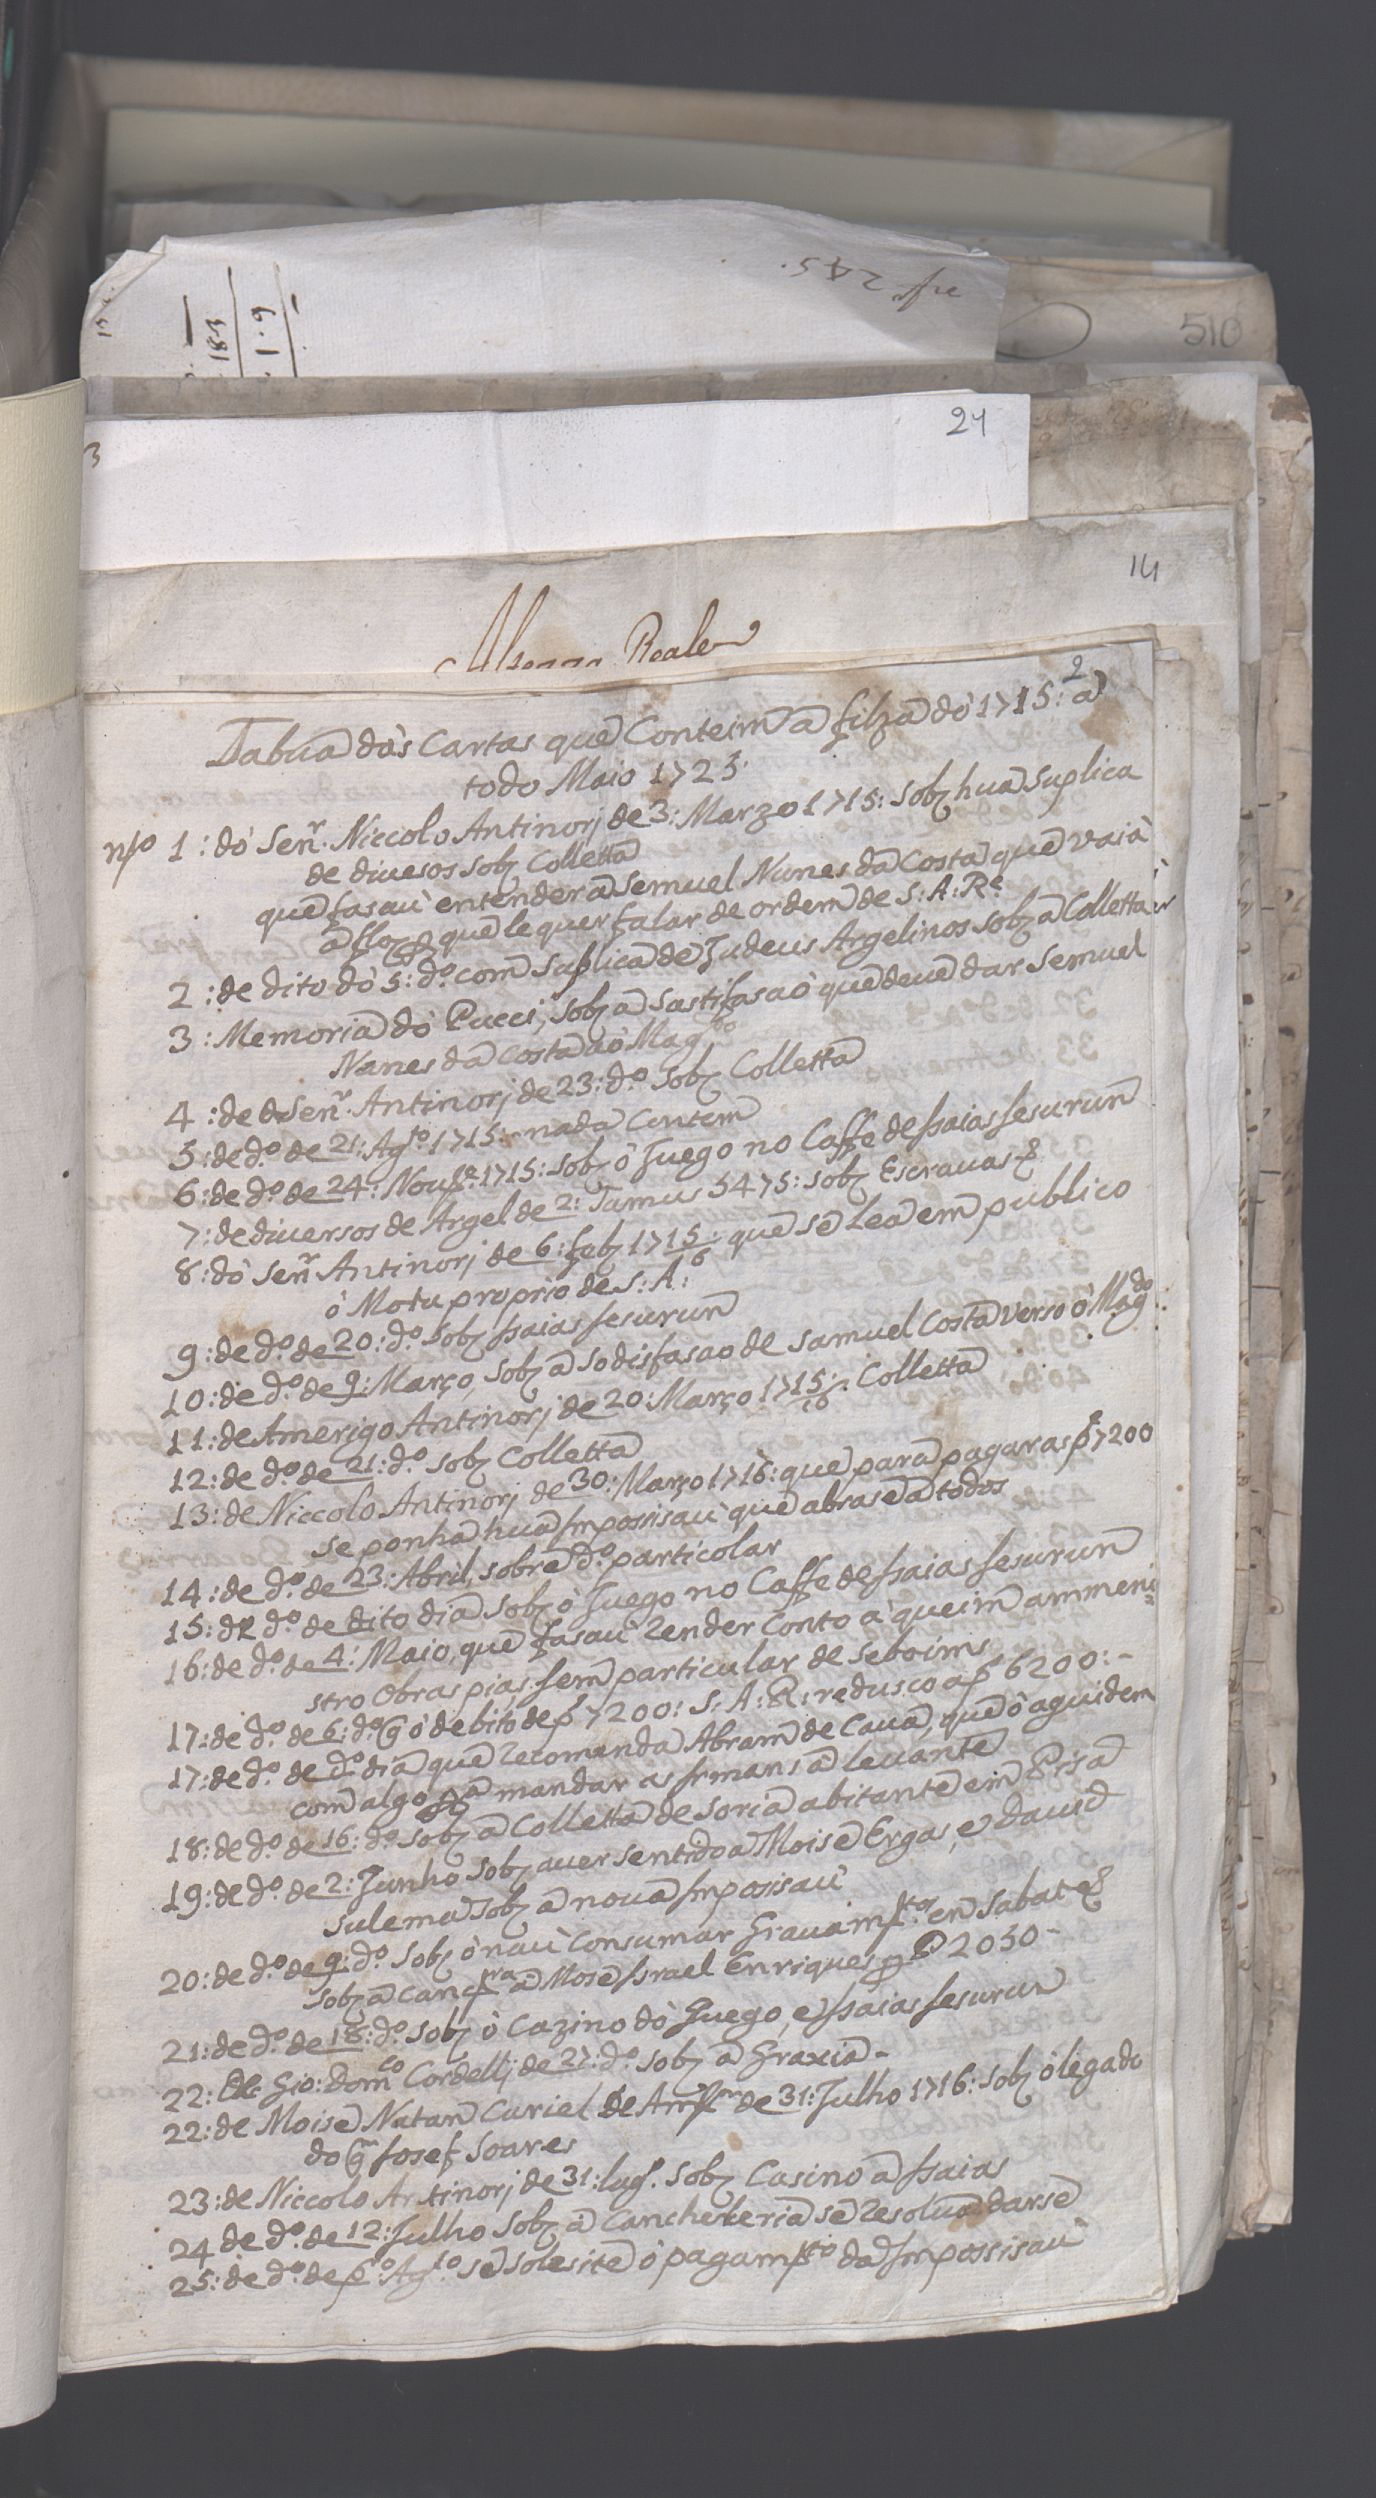 fre 245.
183
1.9
510
3
24
14
Altezza Reale
2
Tabua dòs Cartas que Conteim a filza dò 1715: a
todo Maio 1723
nro 1: dò Senr. Niccolo Antinorj de 3: Marzo 1715: sob hua Suplica
de diuesos sob Colletta
que fasaù entender a Semuel Nunes da Costa que vaia à
a flo que le quer falar de ordem de S: A: Re
2: de dito dò 5: do. com Suplica de Judeus Argelinos sob a Colletta
3: Memoria dò Pucci, sob a Sastifasaò que deue dar Semuel
Nunes da Costa aò Magto
4: de Senr. Antinorj de 23: do. sob Colletta
5: de do. de 21: Agto. 1715: nada Contem
6: de do. de 24: Noue. 1715: sob ò Juego no Caffe de Isaias Jesurun
7: de diuersos de Argel de 2: Tamus 5475: sob Escrauas &
8: dò Senr Antinorj de 6: feb 1715/6: que se Lea em publico
ò Motu proprio de S: A:
9: de do. de 20: do. sob Isaias Jesurun
10: de do. de 9: Março, sob a sodisfasao de Samuel Costa verso ò Magdo:
11: de Amerigo Antinorj de 20: Março 1715/16: Colletta
12: de do. de 21: do. sob Colletta
13: de Niccolo Antinorj de 30: Março 1716: que para pagar as ps 7200
se ponha hua Imposisaù que abrase a todos
14: de do. de 23: Abril, sobre do. particolar
15: de do. de dito dia sob ò Juego no Caffe de Isaias Jesurun
16: de do. de 4: Maio, que fasaù Render Conto a queim ammeni
stro Obras pias, sem particular de seboims
17: de do. de 6: do. q ò debito de ps 7200: S: A: R: redusco a ps 6200: -
17: de do. de do. dia que Recomenda Abram de Caua, que ò aguidem
com algo pa mandar as Irmans a leuante
18: de do. de 16: do. sob a Colletta de Soria abitante em Pisa
19: de do. de 2: Junho sob auer sentido a Moise Ergas, e Dauid
Sulema sob a noua Imposisaù
20: de do. de 9: do. sob ò naù Consumar Grauamtos. en Sabat &
sob a Cancra a Mose Israel Enriques p P 2030 -
21: de do. de 18: do. sob ò Cazino dò Juego, e Isaias Jesurun
22: Gio: Domco Cordellj de 27: do. sob a Graxia -
22: de Moise Natan Curiel de Amstm de 31: Julho 1716: sob ò legado
do q Josef Soares
23: de Niccolo Antinorj de 31: lugo. sob Casino a Isaias
24 de do. de 12: Julho sob a Canchelleria se Resolua darse
25: de do. de po. Agto. se solesite ò pagamto da Impossisaù